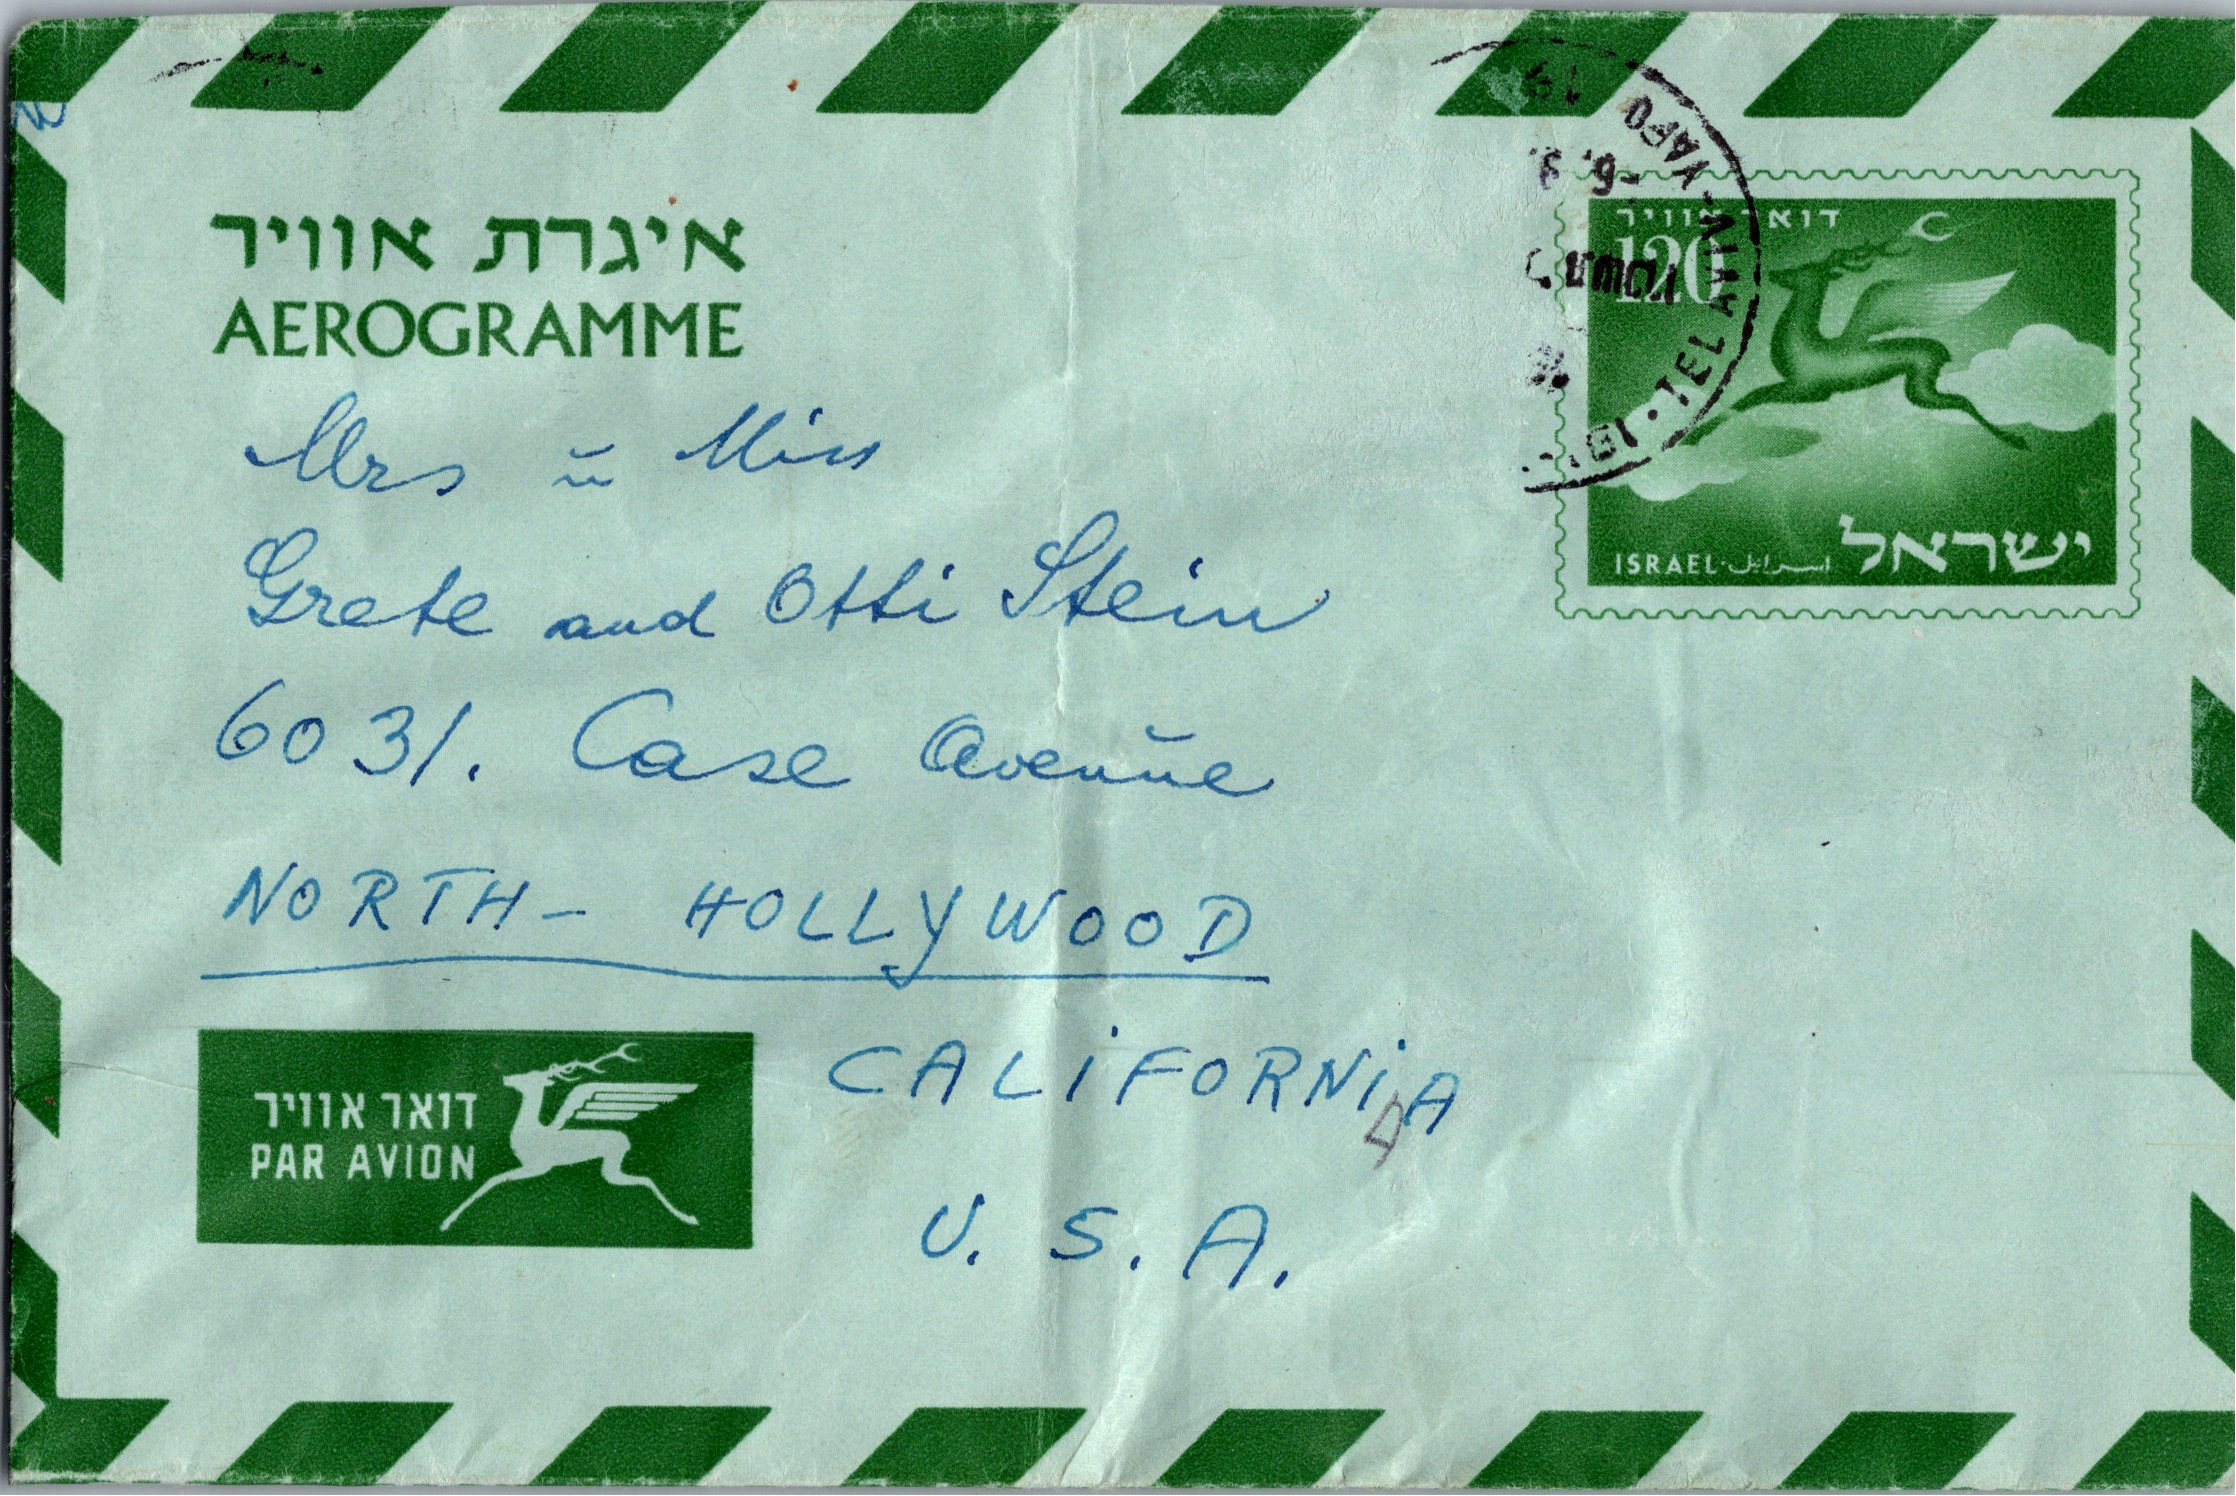 איגרת אוויר
AEROGRAMME
19
-6.
TEL AVIV-YAFO
דואר אוויר
120
ישראל
ISRAEL-اسرائيل
Mrs u Miss
Grete and Otti Stein
6031. Case Avenue
NORTH- HOLLYWOOD
CALiFORNiA
U. S. A.
דואר אוויר
PAR AVION